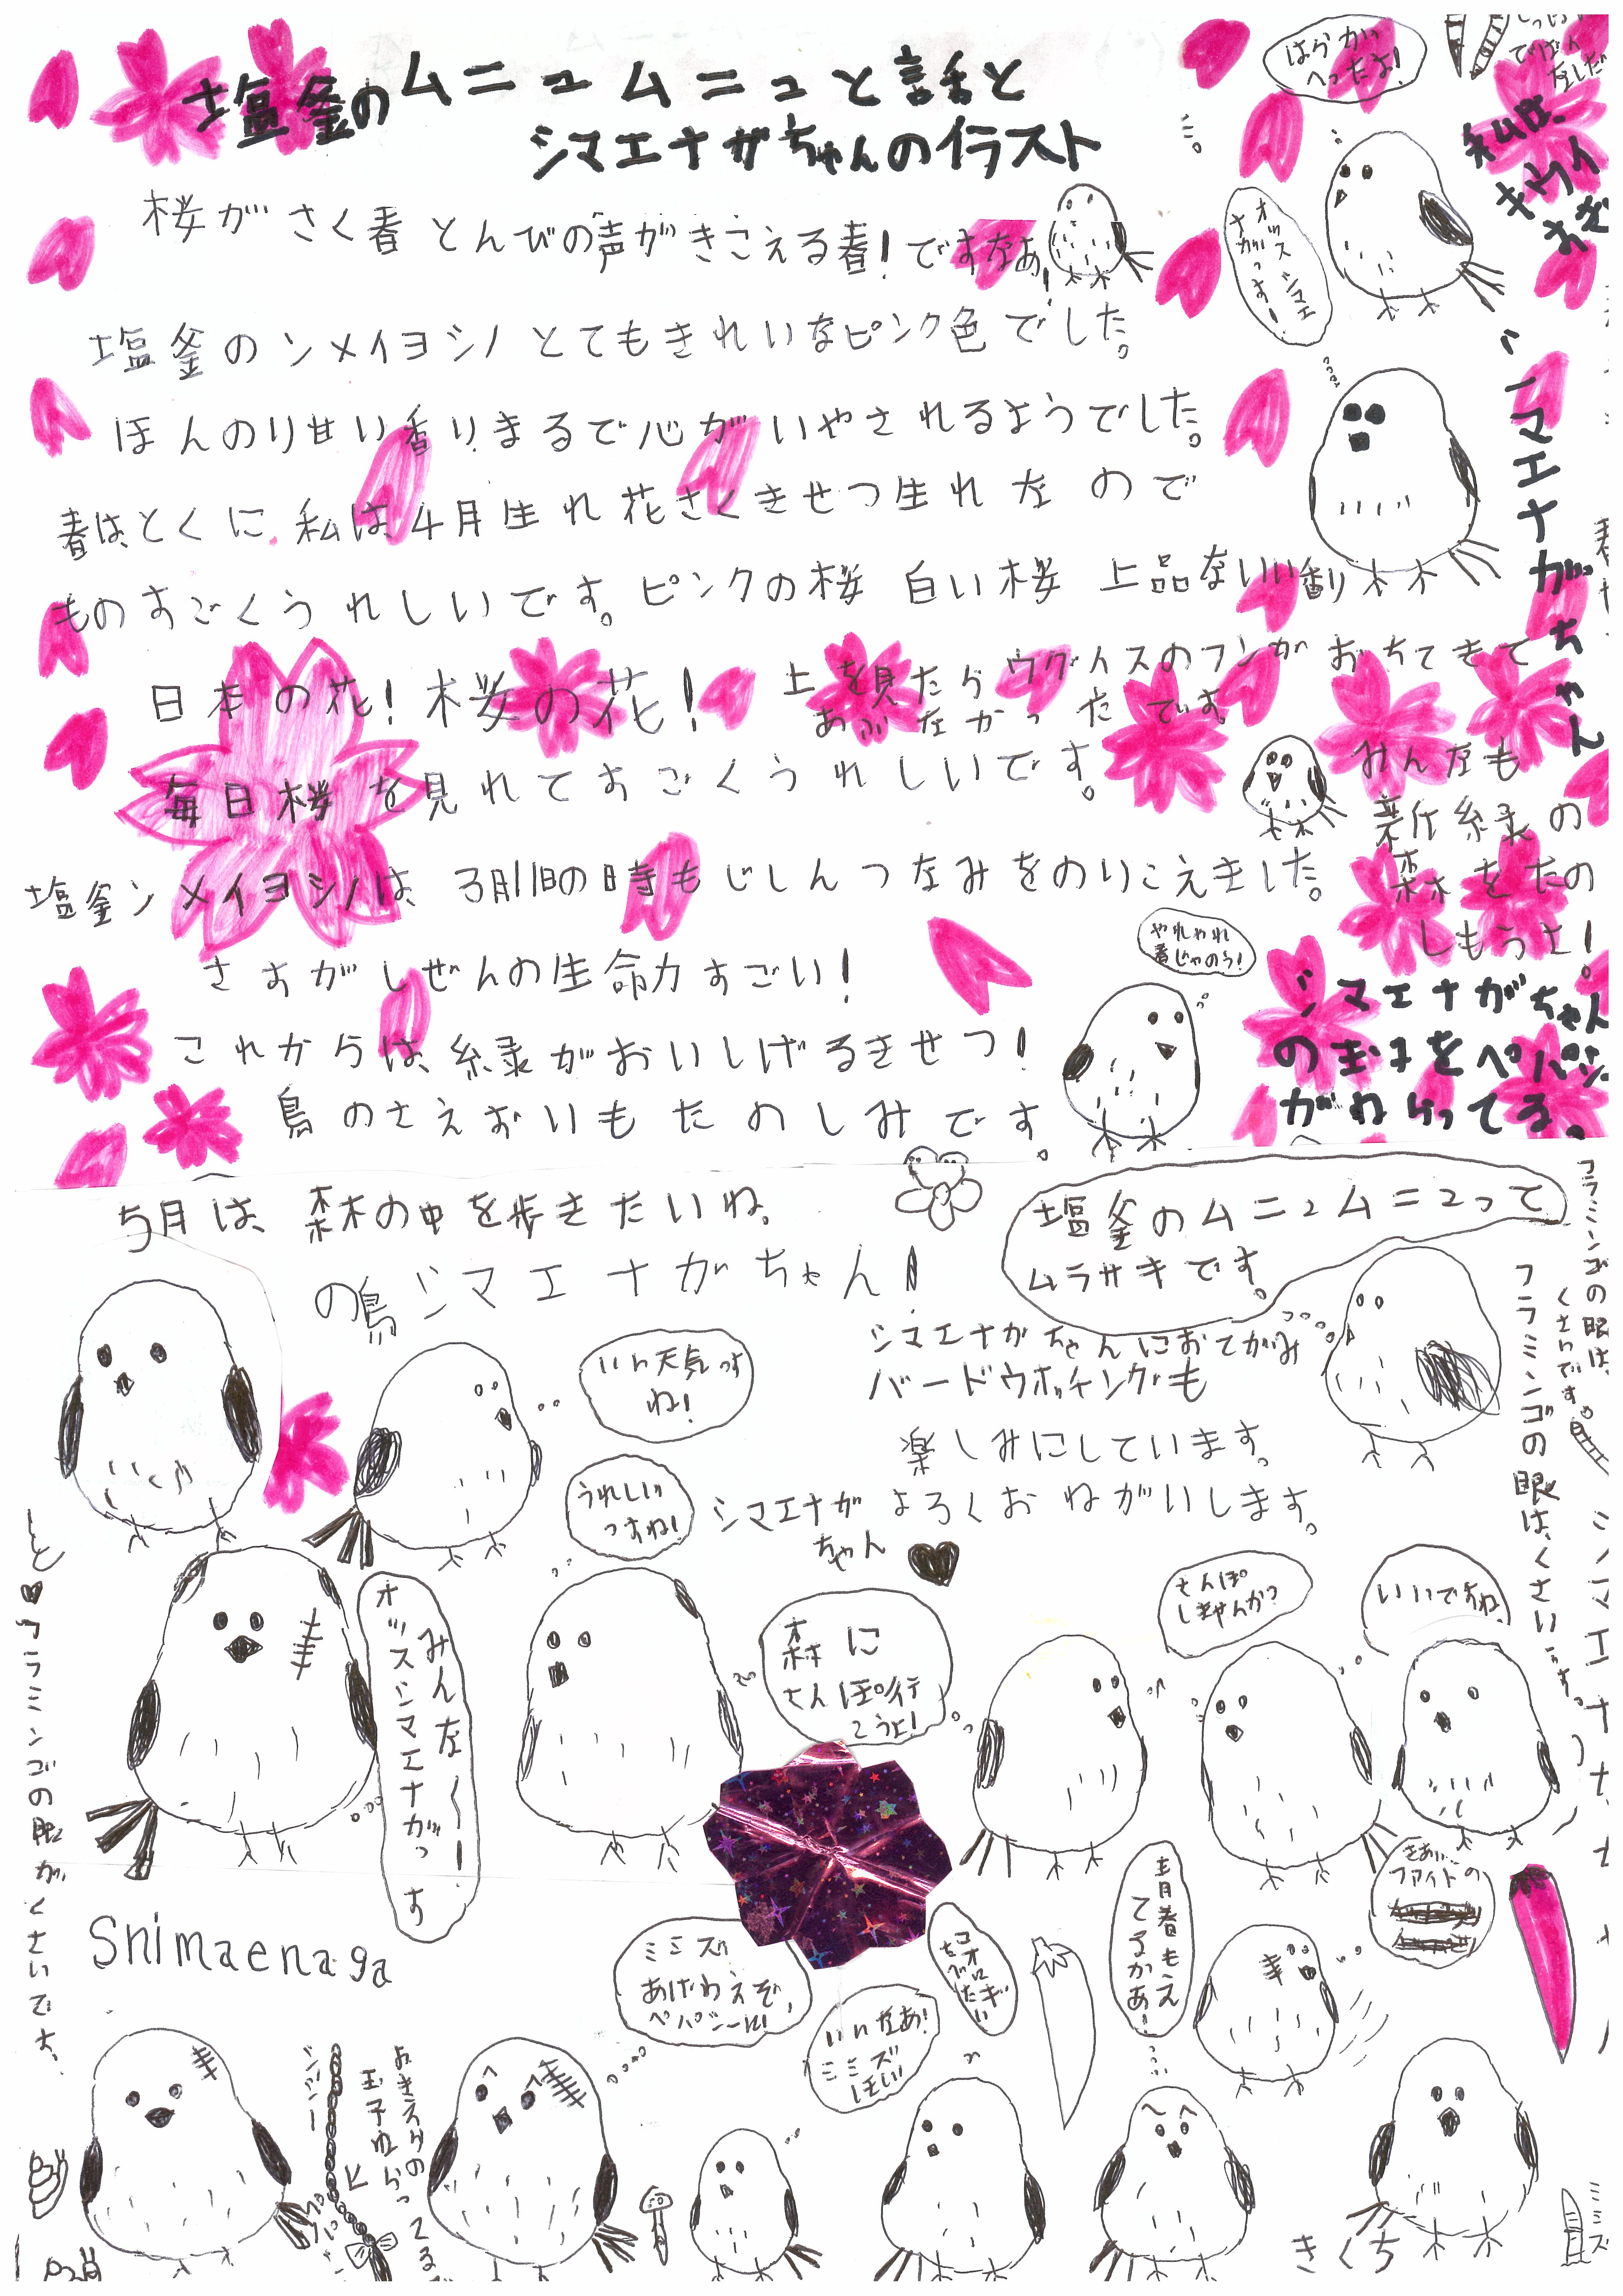 塩釜のムニュムニュと話と
シマエナガちゃんのイラスト
桜がさく春とんびの声がきこえる春!ですなあ!
塩釜のソメイヨシノとてもきれいなピンク色でした。
ほんのり甘い香りまるで心がいやされるようでした。
春は、とくに、私は、4月生れ花さくきせつ生れなので
ものすごくうれしいです。ピンクの桜 白い桜 上品ないい香り
日本の花!桜の花!
上を見たらウグイスのフンがおちてきて
あぶなかったです。
毎日桜を見れてすごくうれしいです。
塩釜ソメイヨシノは、3月11日の時もじしんつなみをのりこえきました。
さすがしぜんの生命力すごい!
これからは、緑がおいしげるきせつ!
鳥のさえずいもたのしみです。
はらがいへったよ!
オッスシマエナガっす!
シマエナガちゃん
みんなも
新緑の
森をたの
しもうよ!
やれやれ
春じゃのう!
シマエナガちゃん
の玉子をペパシー
がねらってる。
5月は、森の中を歩きたいね。
の鳥シマエナガちゃん!
塩釜のムニュムニュって
ムラサキです。
シマエナガちゃんにおてがみ
バードウオッチングも
楽しみにしています。
シマエナガちゃん よろくおねがいします。
いい天気っす
ね!
うれしい
っすね!
みんな〜!
オッスシマエナガっす
森に
さんぽ行
こうよ!
さんぽ
しませんか?
いいですね、
フラミンゴの眼は、
くさいです。
フラミンゴの眼は、くさいっす。
フラミンゴの眼がくさいです。
Shimaenaga
ミミズ
あげねえぞ、
ペパシーに!
いいなあ!
ミミズ
ほしい
コオロギ
たべたい
青春もえ
てるかあ!
きあい、
ファイトの
玉子ねらってる
きくち
ミミズ